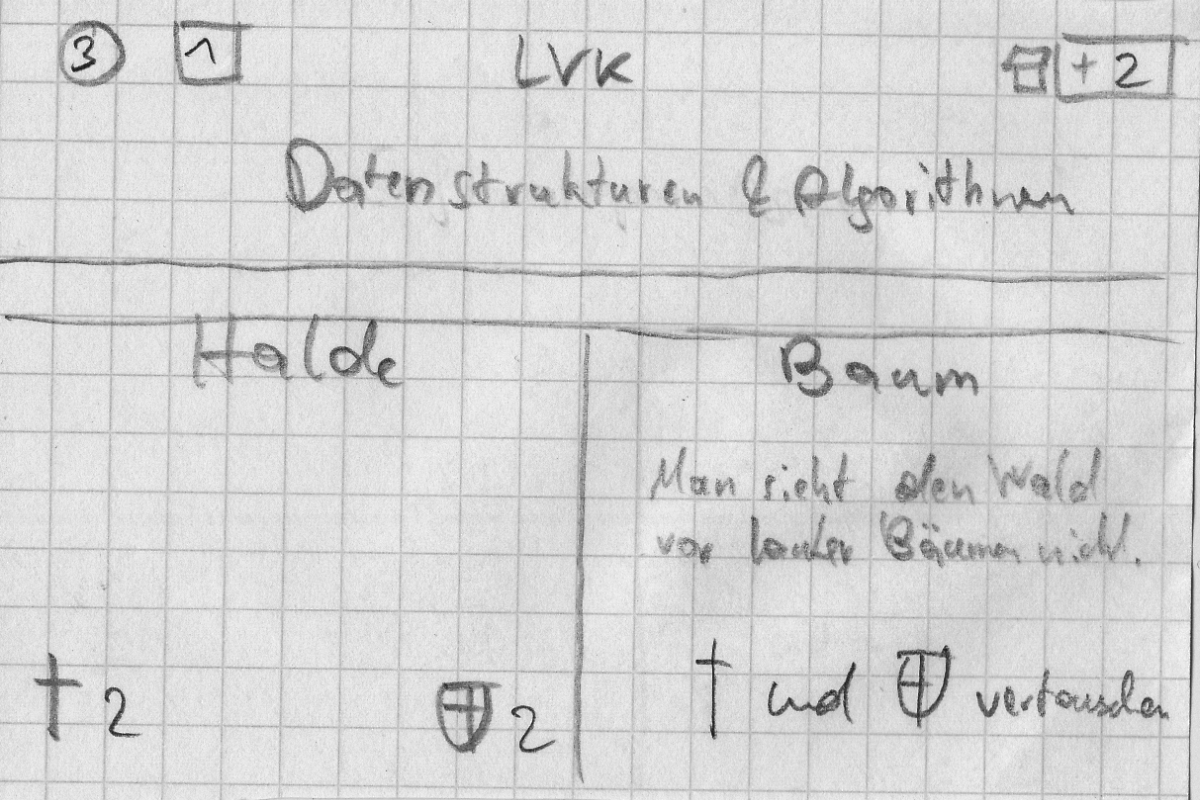 3 1 LVK +2
Datenstrukturen & Algorithmen
Halde
Baum
Man sieht den Wald
vor lauter Bäumen nicht.
2 2
und vertauschen